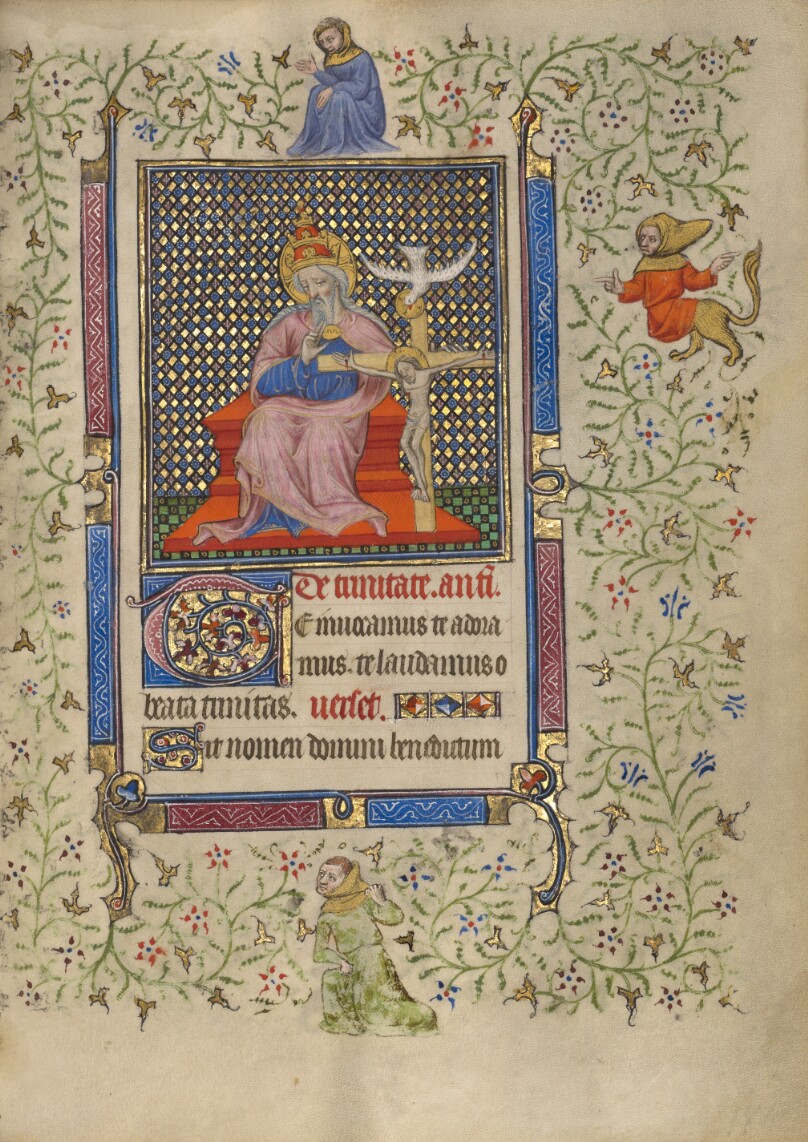 De trinitate. anti.
Te inuocamus te adora
mus. te laudamus o
beata trinitas. uerset.
Sit nomen domini benedictum